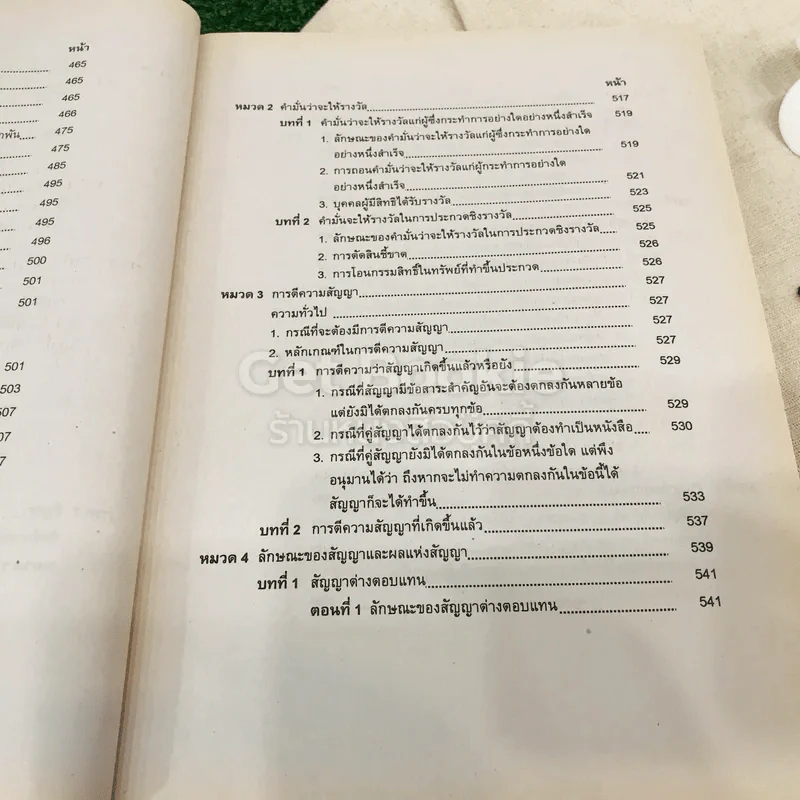 หน้า
465
465
465
466
าพัน 475
475
485
495
495
495
496
500
501
501
501
503
507
507
507
หน้า
หมวด 2 คำมั่นว่าจะให้รางวัล 517
บทที่ 1 คำมั่นว่าจะให้รางวัลแก่ผู้ซึ่งกระทำการอย่างใดอย่างหนึ่งสำเร็จ 519
1. ลักษณะของคำมั่นว่าจะให้รางวัลแก่ผู้ซึ่งกระทำการอย่างใด
อย่างหนึ่งสำเร็จ 519
2. การถอนคำมั่นว่าจะให้รางวัลแก่ผู้กระทำการอย่างใด
อย่างหนึ่งสำเร็จ 521
3. บุคคลผู้มีสิทธิได้รับรางวัล 523
บทที่ 2 คำมั่นจะให้รางวัลในการประกวดชิงรางวัล 525
1. ลักษณะของคำมั่นว่าจะให้รางวัลในการประกวดชิงรางวัล 525
2. การตัดสินชี้ขาด 526
3. การโอนกรรมสิทธิ์ในทรัพย์ที่ทำขึ้นประกวด 526
หมวด 3 การตีความสัญญา 527
ความทั่วไป 527
1. กรณีที่จะต้องมีการตีความสัญญา 527
2. หลักเกณฑ์ในการตีความสัญญา 527
บทที่ 1 การตีความว่าสัญญาเกิดขึ้นแล้วหรือยัง 529
1. กรณีที่สัญญามีข้อสาระสำคัญอันจะต้องตกลงกันหลายข้อ
แต่ยังมิได้ตกลงกันครบทุกข้อ 529
2. กรณีที่คู่สัญญาได้ตกลงกันไว้ว่าสัญญาต้องทำเป็นหนังสือ 530
3. กรณีที่คู่สัญญายังมิได้ตกลงกันในข้อหนึ่งข้อใด แต่พึง
อนุมานได้ว่า ถึงหากจะไม่ทำความตกลงกันในข้อนี้ได้
สัญญาก็จะได้ทำขึ้น 533
บทที่ 2 การตีความสัญญาที่เกิดขึ้นแล้ว 537
หมวด 4 ลักษณะของสัญญาและผลแห่งสัญญา 539
บทที่ 1 สัญญาต่างตอบแทน 541
ตอนที่ 1 ลักษณะของสัญญาต่างตอบแทน 541